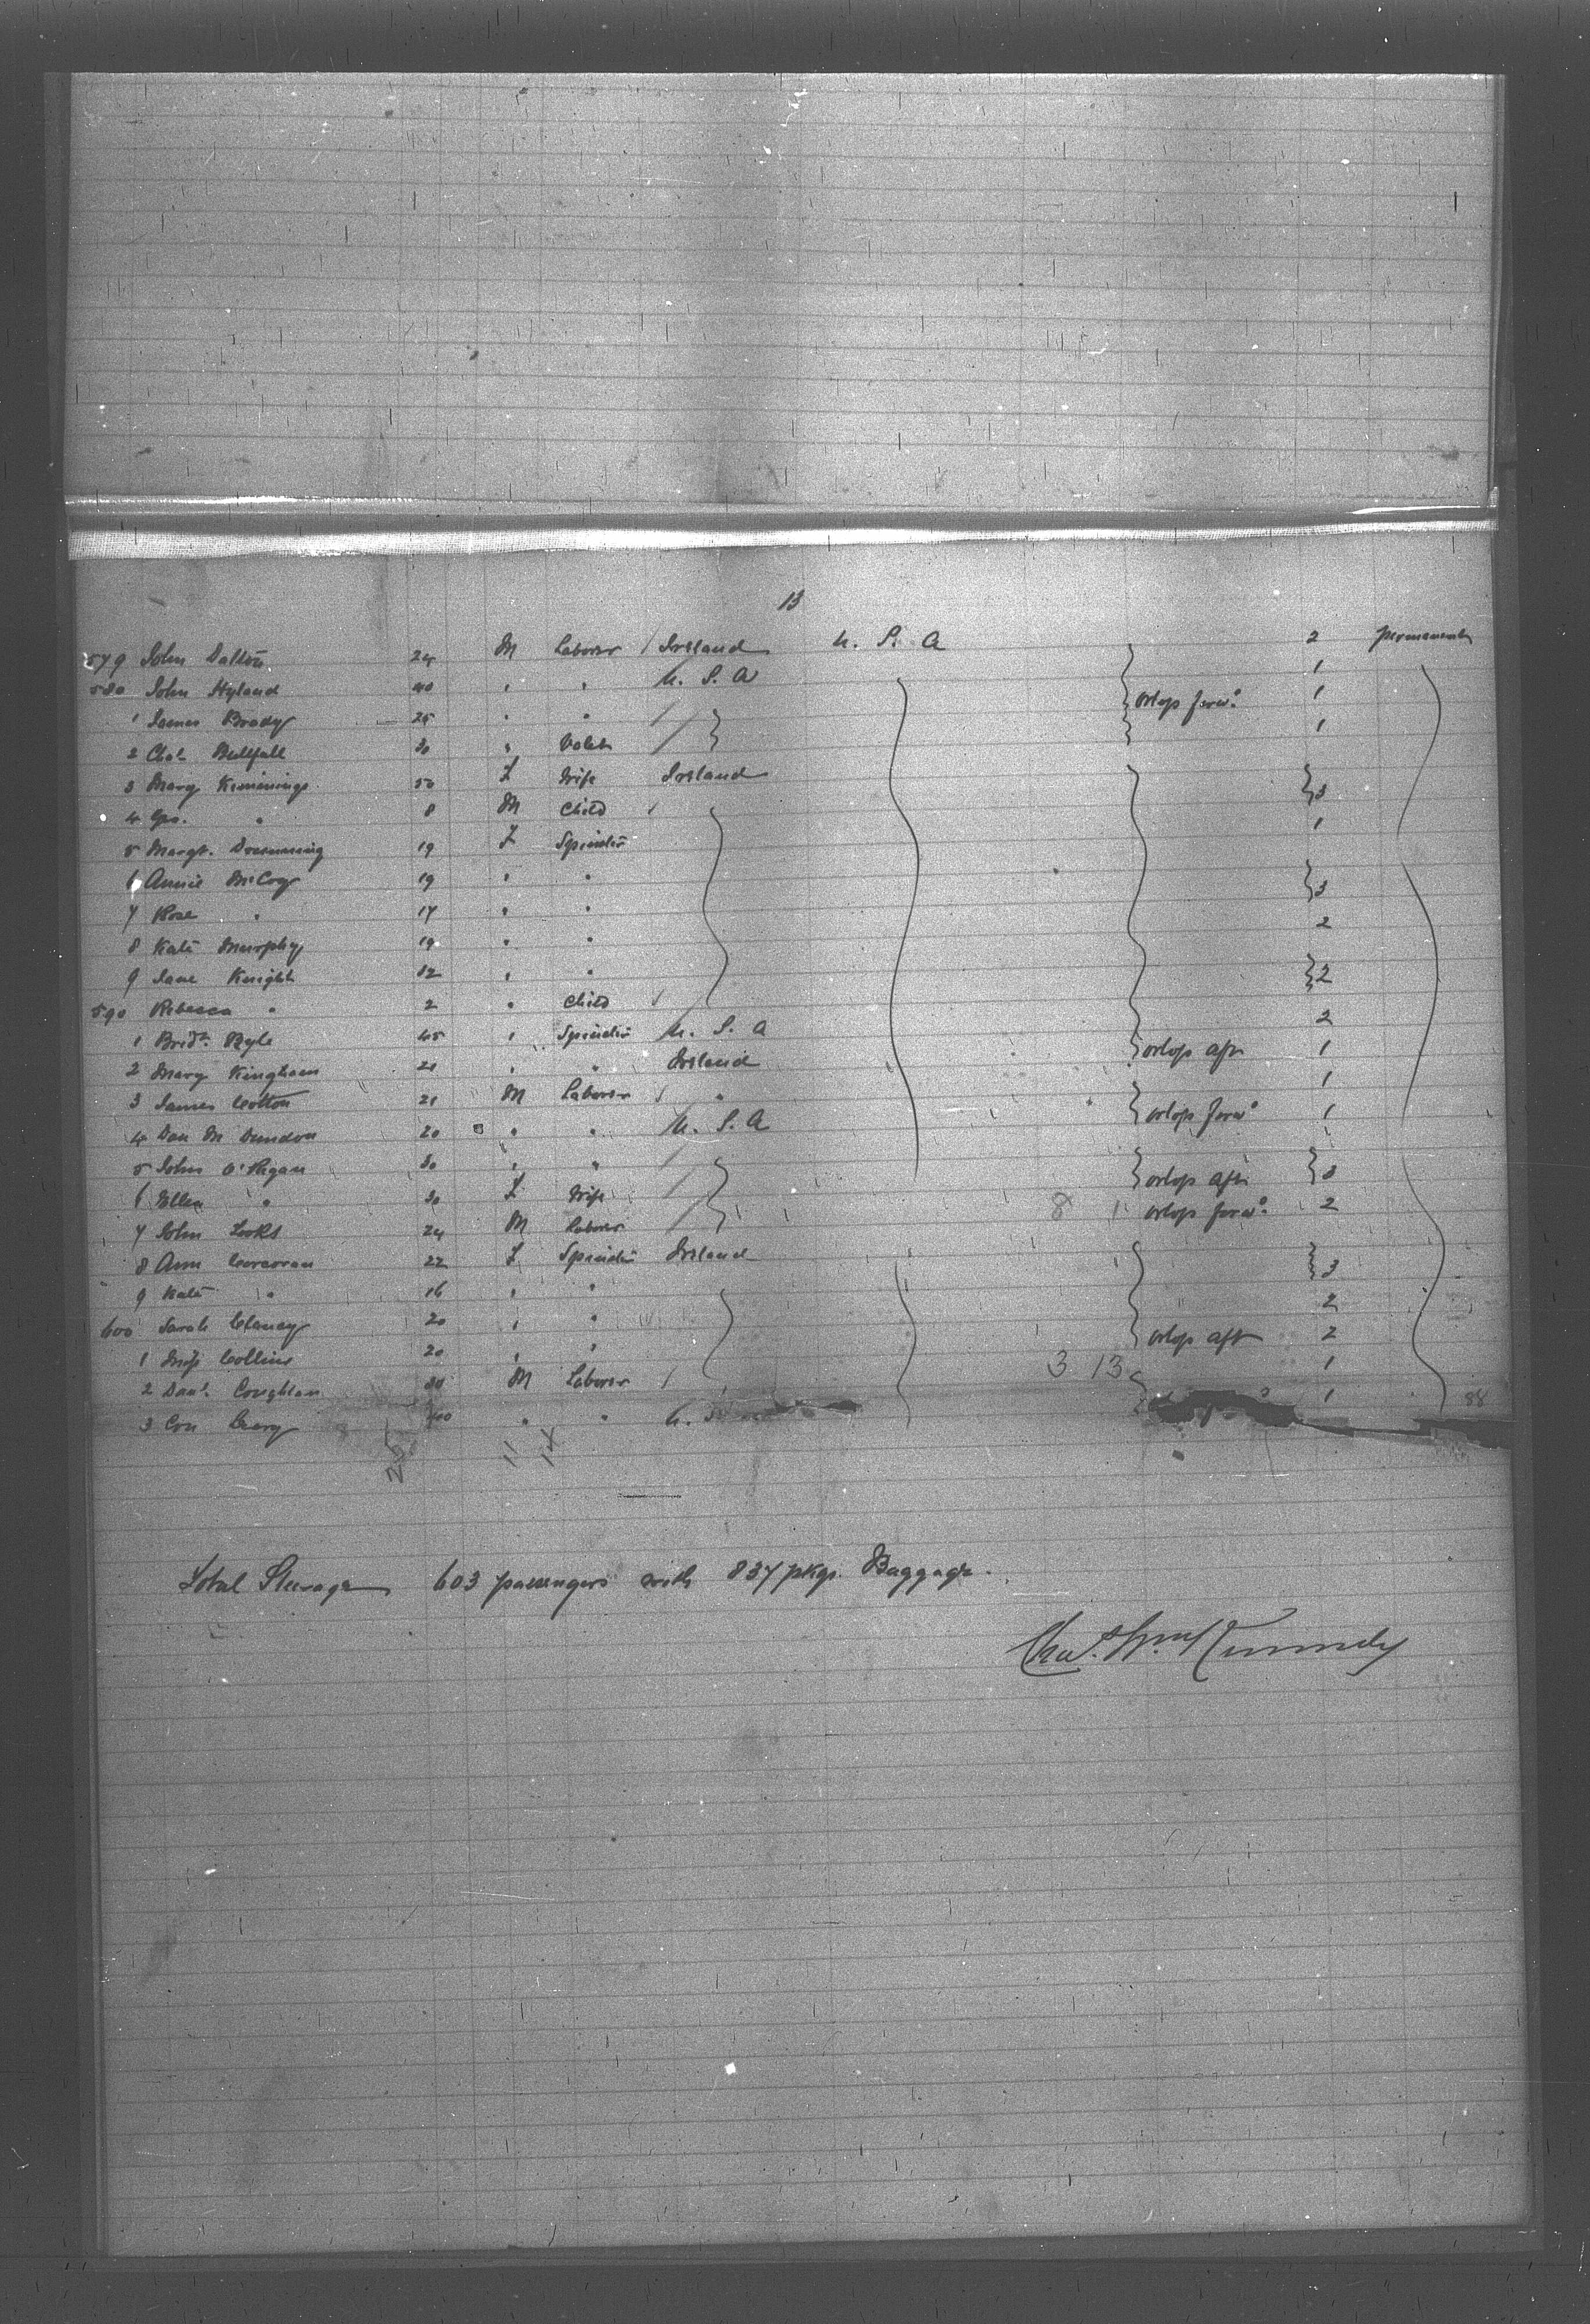 13
579 John Dalton 24 M Laborer / Ireland U. S. A 2 permanent
580 John Hyland 40 " " U. S. A 1
1 James Brady 25 " " / orlop forwd. 1
2 Chas. 30 " Valet / 1
3 Mary Kimmings 50 F Wife Ireland
4 Geo. " 8 M Child / 3
5 Margt. 19 F Spinster 1
6 Annie McCoy 19 " "
7 Rose " 17 " " 3
8 Kate Murphy 19 " " 2
9 Jane Knight 12 " "
590 Rebecca " 2 " Child / 2
1 Bridt. Ryle 45 " Spinster U. S. A 2
2 Mary Kingham 21 " " Ireland orlop aft 1
3 James Cotton 21 M Laborer / " 1
4 Dan McDundon 20 " " U. S. A orlop forwd 1
5 John O'Regan 30 " " /
6 Ellen " 30 F Wife / orlop aft 3
7 John 24 M Laborer / 8 1 orlop forwd. 2
8 Ann Corcoran 22 F Spinster Ireland
9 Kate " 16 " " 3
600 Sarah Clancy 20 " " 2
1 Miss Collins 20 " " orlop aft 2
2 Danl. Coughlan 30 M Laborer / 3 13 1
3 Con Leary 40 " " U. S. 1 88
25 11 14
Total Steerage 603 passengers with 837 pkgs. Baggage.
Chas. Wm. Kennedy